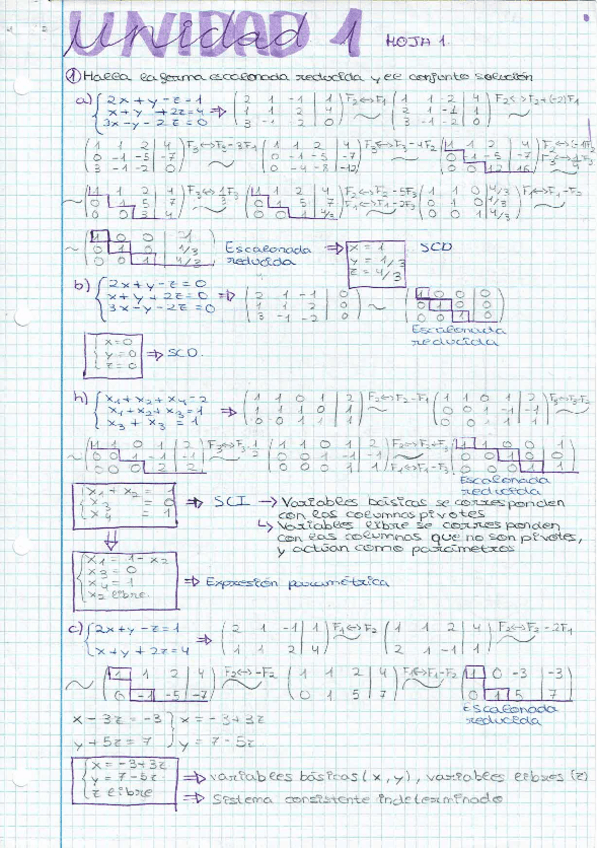 Unidad 1 HOJA 1.
① Halla la forma escalonada reducida y el conjunto solución
a) { 2x + y - z = 1 x + y + 2z = 4 3x - y - 2z = 0 ⇒ ( 2 1 -1 | 1 1 1 2 | 4 3 -1 -2 | 0 ) F₂↔F₁ ~ ( 1 1 2 | 4 2 1 -1 | 1 3 -1 -2 | 0 ) F₂↔F₂+(-2)F₁
( 1 1 2 | 4 0 -1 -5 | -7 3 -1 -2 | 0 ) F₃↔F₃-3F₁ ~ ( 1 1 2 | 4 0 -1 -5 | -7 0 -4 -8 | -12 ) F₃↔F₃-4F₂ ~ ( 1 1 2 | 4 0 -1 -5 | -7 0 0 12 | 16 )
~ ( 1 1 2 | 4 0 1 5 | 7 0 0 3 | 4 ) F₃↔1/3F₃ ~ ( 1 1 2 | 4 0 1 5 | 7 0 0 1 | 4/3 ) F₂↔F₂-5F₃ F₁↔F₁-2F₃ ~ ( 1 1 0 | 4/3 0 1 0 | 1/3 0 0 1 | 4/3 ) F₁↔F₁-F₂
~ ( 1 0 0 | 1 0 1 0 | 1/3 0 0 1 | 4/3 ) Escalonada reducida ⇒ x = 1 y = 1/3 z = 4/3 SCD
b) { 2x + y - z = 0 x + y + 2z = 0 3x - y - 2z = 0 ⇒ ( 2 1 -1 | 0 1 1 2 | 0 3 -1 -2 | 0 ) ~ ( 1 0 0 | 0 0 1 0 | 0 0 0 1 | 0 )
Escalonada reducida
{ x = 0 y = 0 z = 0 ⇒ SCD.
h) { x₁ + x₂ + x₄ = 2 x₁ + x₂ + x₃ = 1 x₃ + x₃ = 1 ⇒ ( 1 1 0 1 | 2 1 1 1 0 | 1 0 0 1 1 | 1 ) F₂↔F₂-F₁ ~ ( 1 1 0 1 | 2 0 0 1 -1 | -1 0 0 1 1 | 1 ) F₃↔F₃-F₂
~ ( 1 1 0 1 | 2 0 0 1 -1 | -1 0 0 0 2 | 2 ) ~ ( 1 1 0 1 | 2 0 0 1 -1 | -1 0 0 0 1 | 1 ) F₂↔F₂+F₃ F₁↔F₁-F₃ ~ ( 1 1 0 0 | 1 0 0 1 0 | 0 0 0 0 1 | 1 )
Escalonada reducida
{ x₁ + x₂ = 1 x₃ = 0 x₄ = 1 ⇒ SCI → Variables básicas se corresponden
con las columnas pivotes
↳ Variables libre se corresponden
con las columnas que no son pivotes,
y actúan como parámetros
{ x₁ = 1 - x₂ x₃ = 0 x₄ = 1 x₂ libre. ⇒ Expresión paramétrica
c) { 2x + y - z = 1 x + y + 2z = 4 ⇒ ( 2 1 -1 | 1 1 1 2 | 4 ) F₁↔F₂ ~ ( 1 1 2 | 4 2 1 -1 | 1 ) F₂↔F₂-2F₁
~ ( 1 1 2 | 4 0 -1 -5 | -7 ) F₂↔-F₂ ~ ( 1 1 2 | 4 0 1 5 | 7 ) F₁↔F₁-F₂ ~ ( 1 0 -3 | -3 0 1 5 | 7 )
Escalonada reducida
x - 3z = -3 } x = -3 + 3z
y + 5z = 7 } y = 7 - 5z
{ x = -3 + 3z y = 7 - 5z z libre ⇒ variables básicas (x, y), variables libres (z)
⇒ Sistema consistente indeterminado